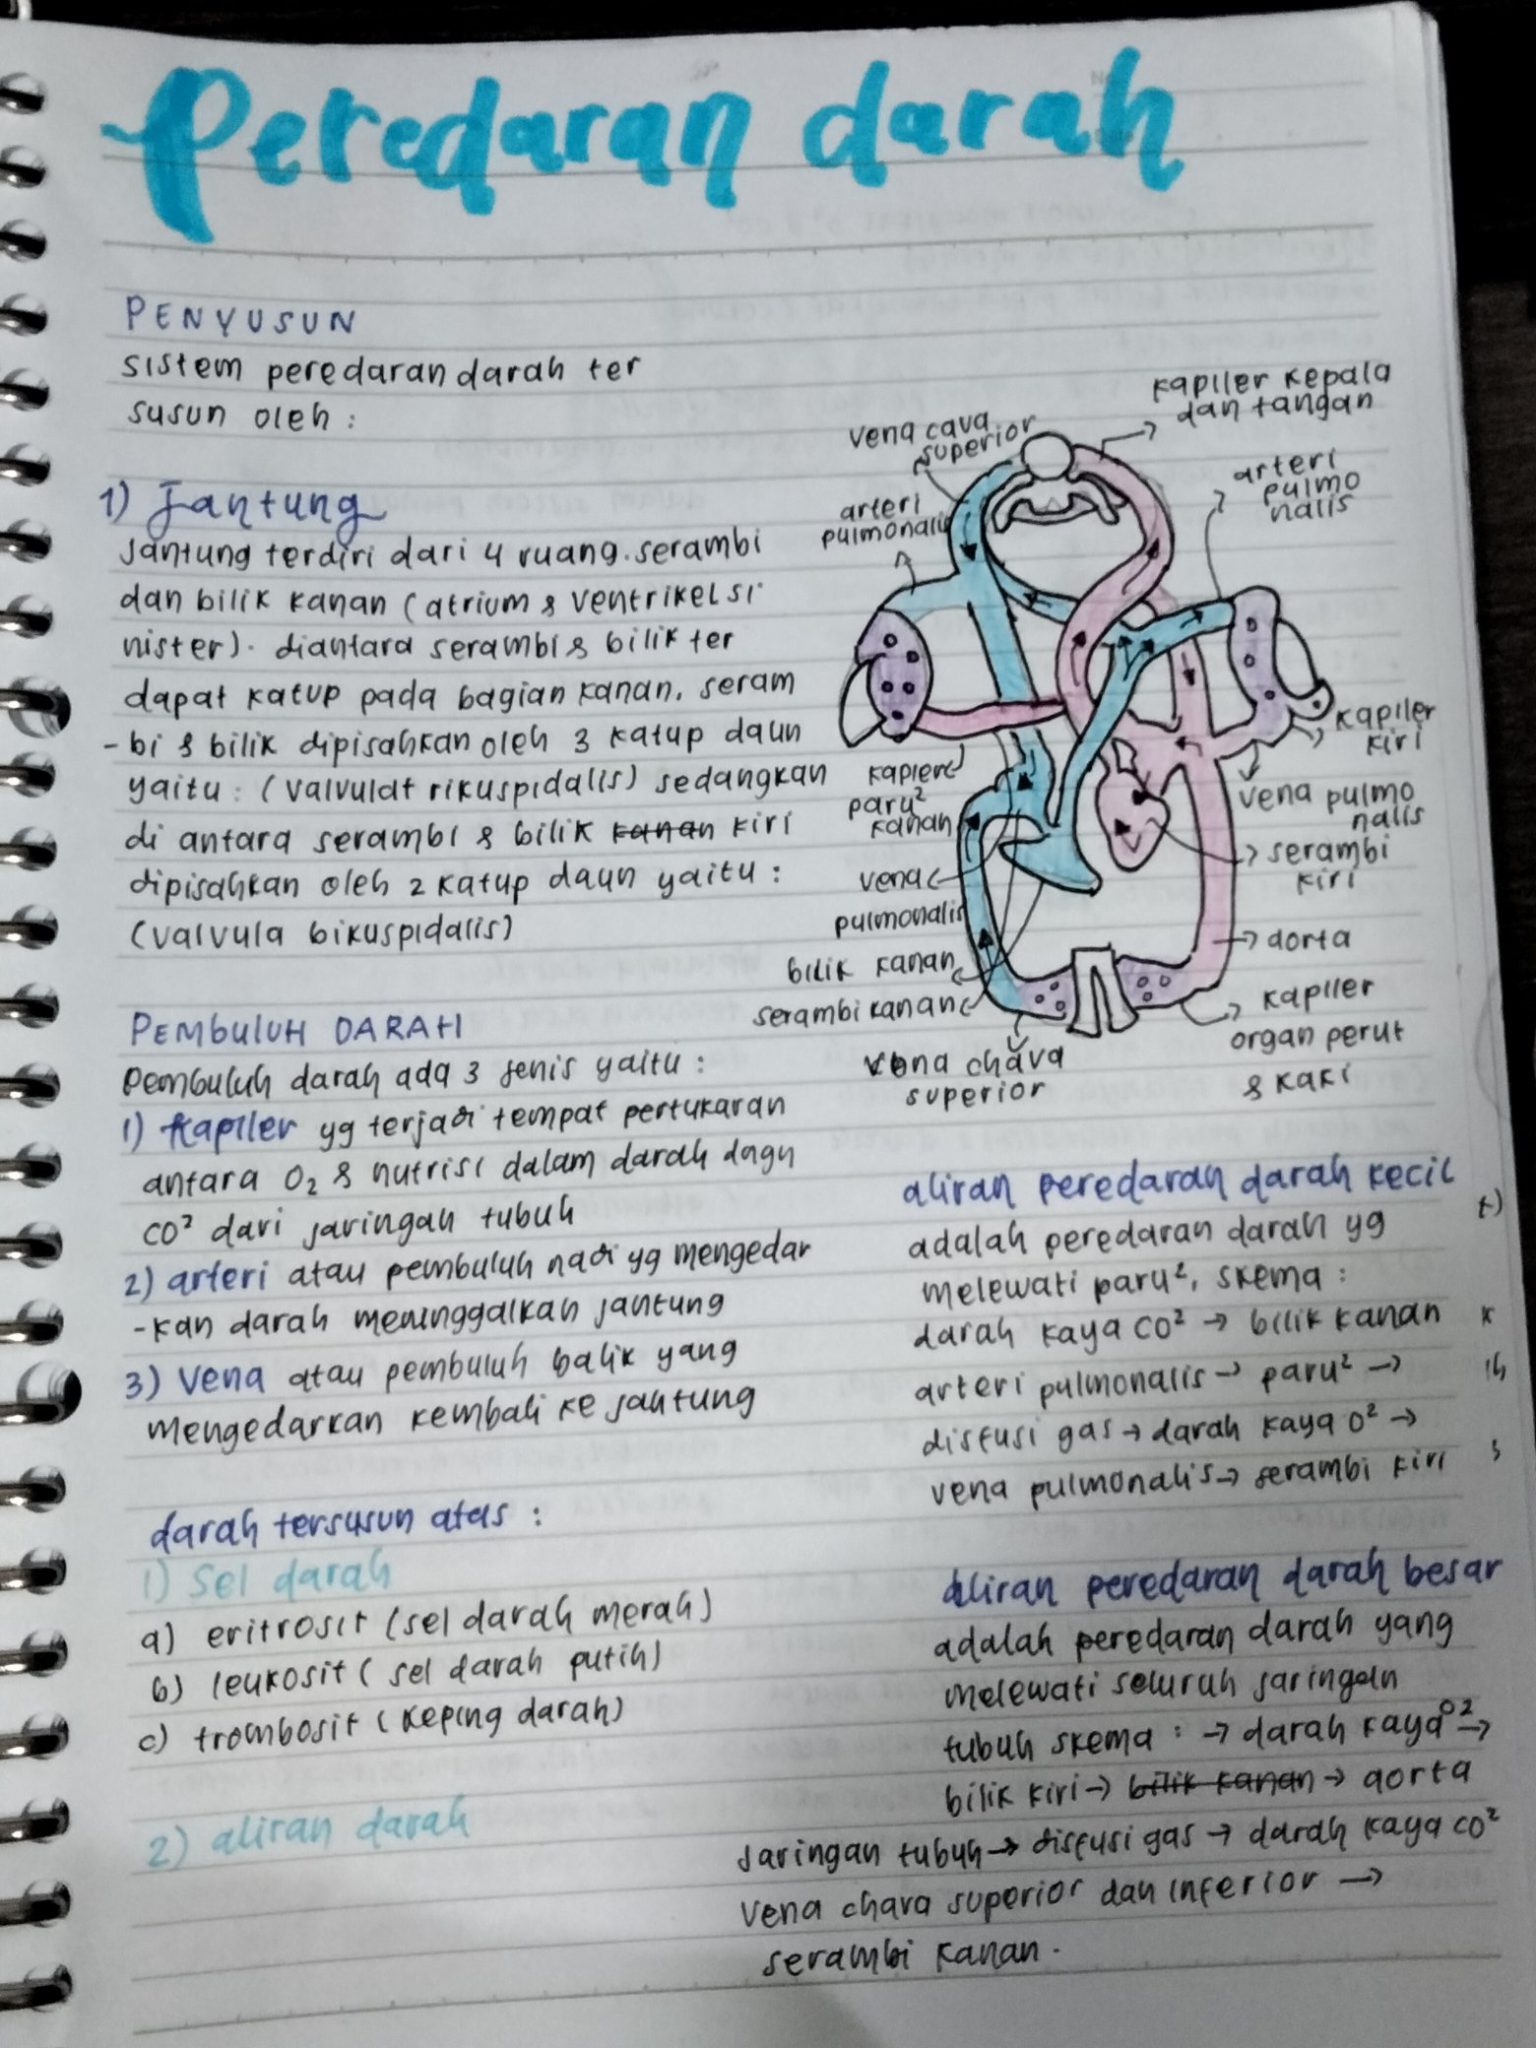 Peredaran darah
PENYUSUN
sistem peredaran darah ter
susun oleh :
1) Jantung
Jantung terdiri dari 4 ruang. serambi
dan bilik kanan (atrium & ventrikel si
nister). diantara serambi & bilik ter
dapat katup pada bagian kanan. seram
- bi & bilik dipisahkan oleh 3 katup daun
yaitu : (valvulat rikuspidalis) sedangkan
di antara serambi & bilik kanan kiri
dipisahkan oleh 2 katup daun yaitu :
(valvula bikuspidalis)
PEMBULUH DARAH
Pembuluh darah ada 3 jenis yaitu :
1) kapiler yg terjadi tempat pertukaran
antara O2 & nutrisi dalam darah dagn
CO² dari jaringan tubuh
2) arteri atau pembuluh nadi yg mengedar
-kan darah meninggalkan jantung
3) Vena atau pembuluh balik yang
mengedarkan kembali ke jantung
darah tersusun atas :
1) Sel darah
a) eritrosit (sel darah merah)
b) leukosit ( sel darah putih)
c) trombosit ( keping darah)
2) aliran darah
vena cava
superior
kapiler kepala
dan tangan
arteri
pulmonalis
arteri
pulmo
nalis
kapiler
kiri
vena pulmo
nalis
paru²
kanan
serambi
kiri
vena
pulmonalis
aorta
bilik kanan
serambi kanan
vena chava
superior
kapiler
organ perut
& kaki
aliran peredaran darah kecil
adalah peredaran darah yg
melewati paru², skema :
darah kaya CO² → bilik kanan
arteri pulmonalis → paru² →
disfusi gas → darah kaya O² →
vena pulmonalis → serambi kiri
aliran peredaran darah besar
adalah peredaran darah yang
melewati seluruh jaringan
tubuh skema : → darah kaya O2 →
bilik kiri → bilik kanan → aorta
Jaringan tubuh → disfusi gas → darah kaya CO²
Vena chava superior dan inferior →
serambi kanan.